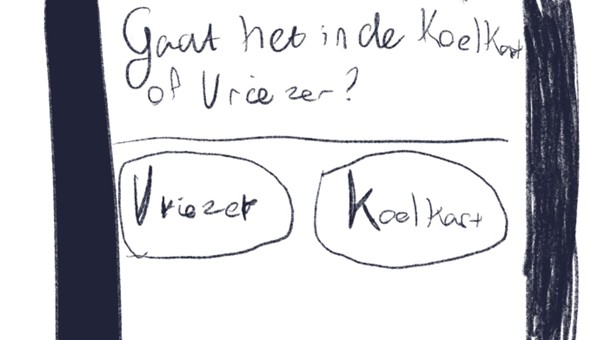 Gaat het in de Koelkast
of Vriezer?
Vriezer Koelkast